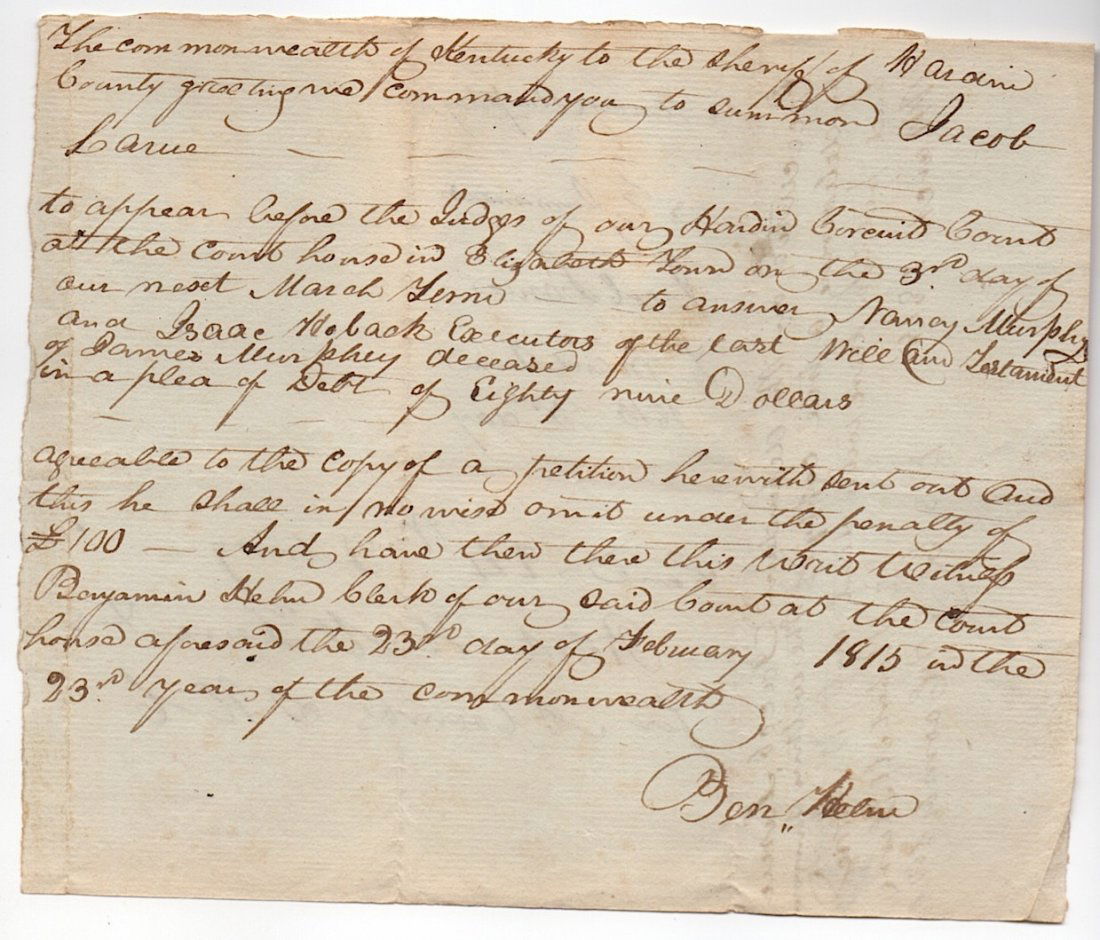 The commonwealth of Kentucky to the Sheriff of Hardin
County greeting we command you to summon Jacob
Larue — — — — —
to appear before the Judges of our Hardin Circuit Court
at the Court house in Elizabeth Town on the 3rd day of
our next March Term to answer Nancy Murphy
and Isaac Hoback Executors of the last Will and Testament
of James Murphey deceased
in a plea of Debt of Eighty nine Dollars
—
agreeable to the copy of a petition herewith sent out and
this he shall in no wise omit under the penalty of
£100 — And have then there this writ Witness
Benjamin Helm Clerk of our said Court at the Court
house aforesaid the 23rd day of February 1815 in the
23rd year of the commonwealth
Ben" Helm